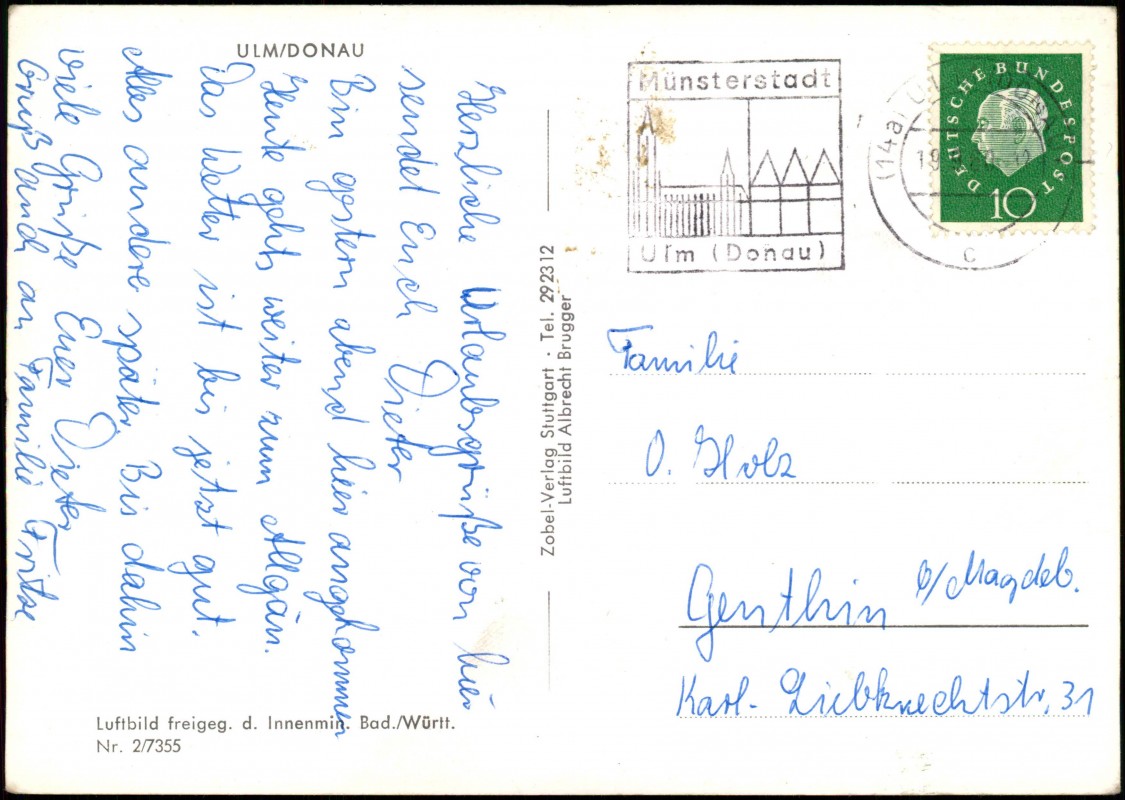 ULM/DONAU
Herzliche Urlaubsgrüße von hier
sendet Euch Dieter
Bin gestern abend hier angekommen
Heute gehts weiter zum Allgäu.
Das Wetter ist bis jetzt gut.
Alles andere später. Bis dahin
viele Grüße Euer Dieter
Gruß auch an Familie Fritze
Luftbild freigeg. d. Innenmin. Bad./Württ.
Nr. 2/7355
Zobel-Verlag Stuttgart · Tel. 292312
Luftbild Albrecht Brugger
Münsterstadt
Ulm (Donau)
(14a) U
C
DEUTSCHE BUNDESPOST
10
Familie
O. Holz
Genthin b/Magdeb.
Karl-Liebknechtstr. 31